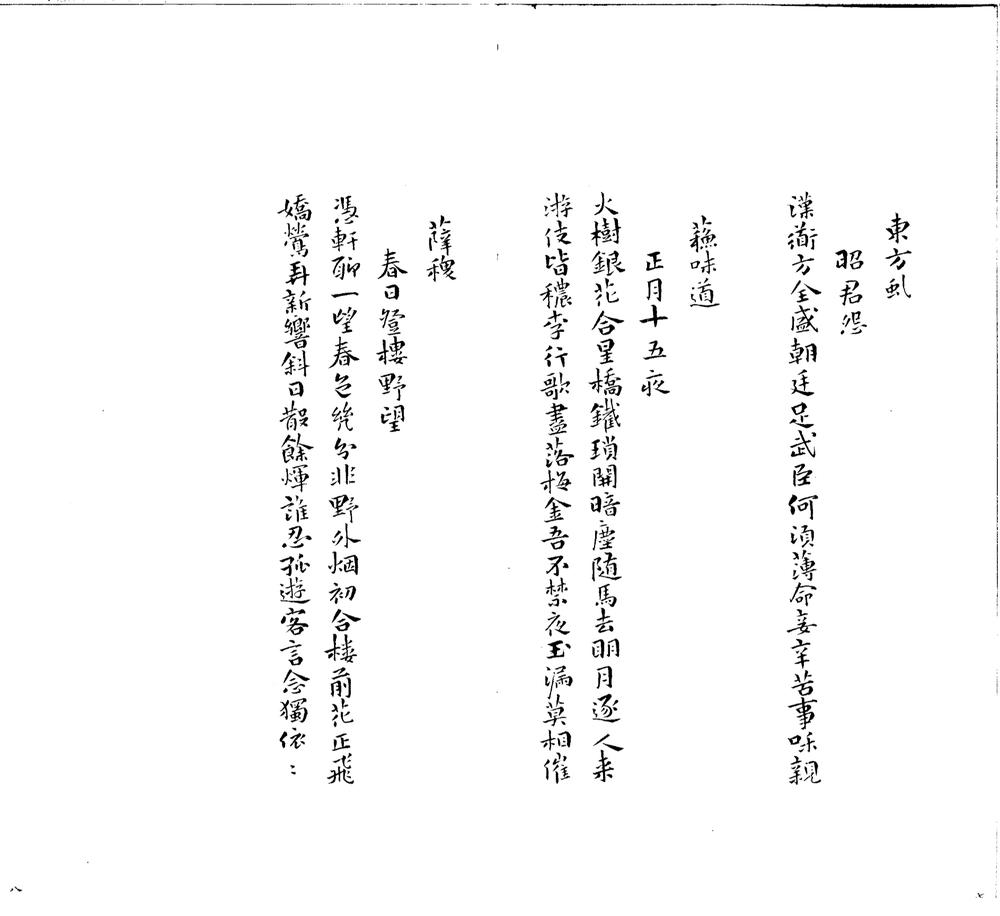 東方虬
昭君怨
漢衜方全盛朝廷足武臣何須薄命妾辛苦事咊親
蘓味道
正月十五夜
火樹銀花合星橋鐵瑣開暗塵隨馬去明月逐人来
游伎皆穠李行歌盡落梅金吾不禁夜玉漏莫相催
薛稷
春日登樓野望
憑軒聊一望春色幾分非野外烟初合楼前花正飛
嬌鶯弄新響斜日散餘煇誰忍孤遊客言念獨依〻
七
八